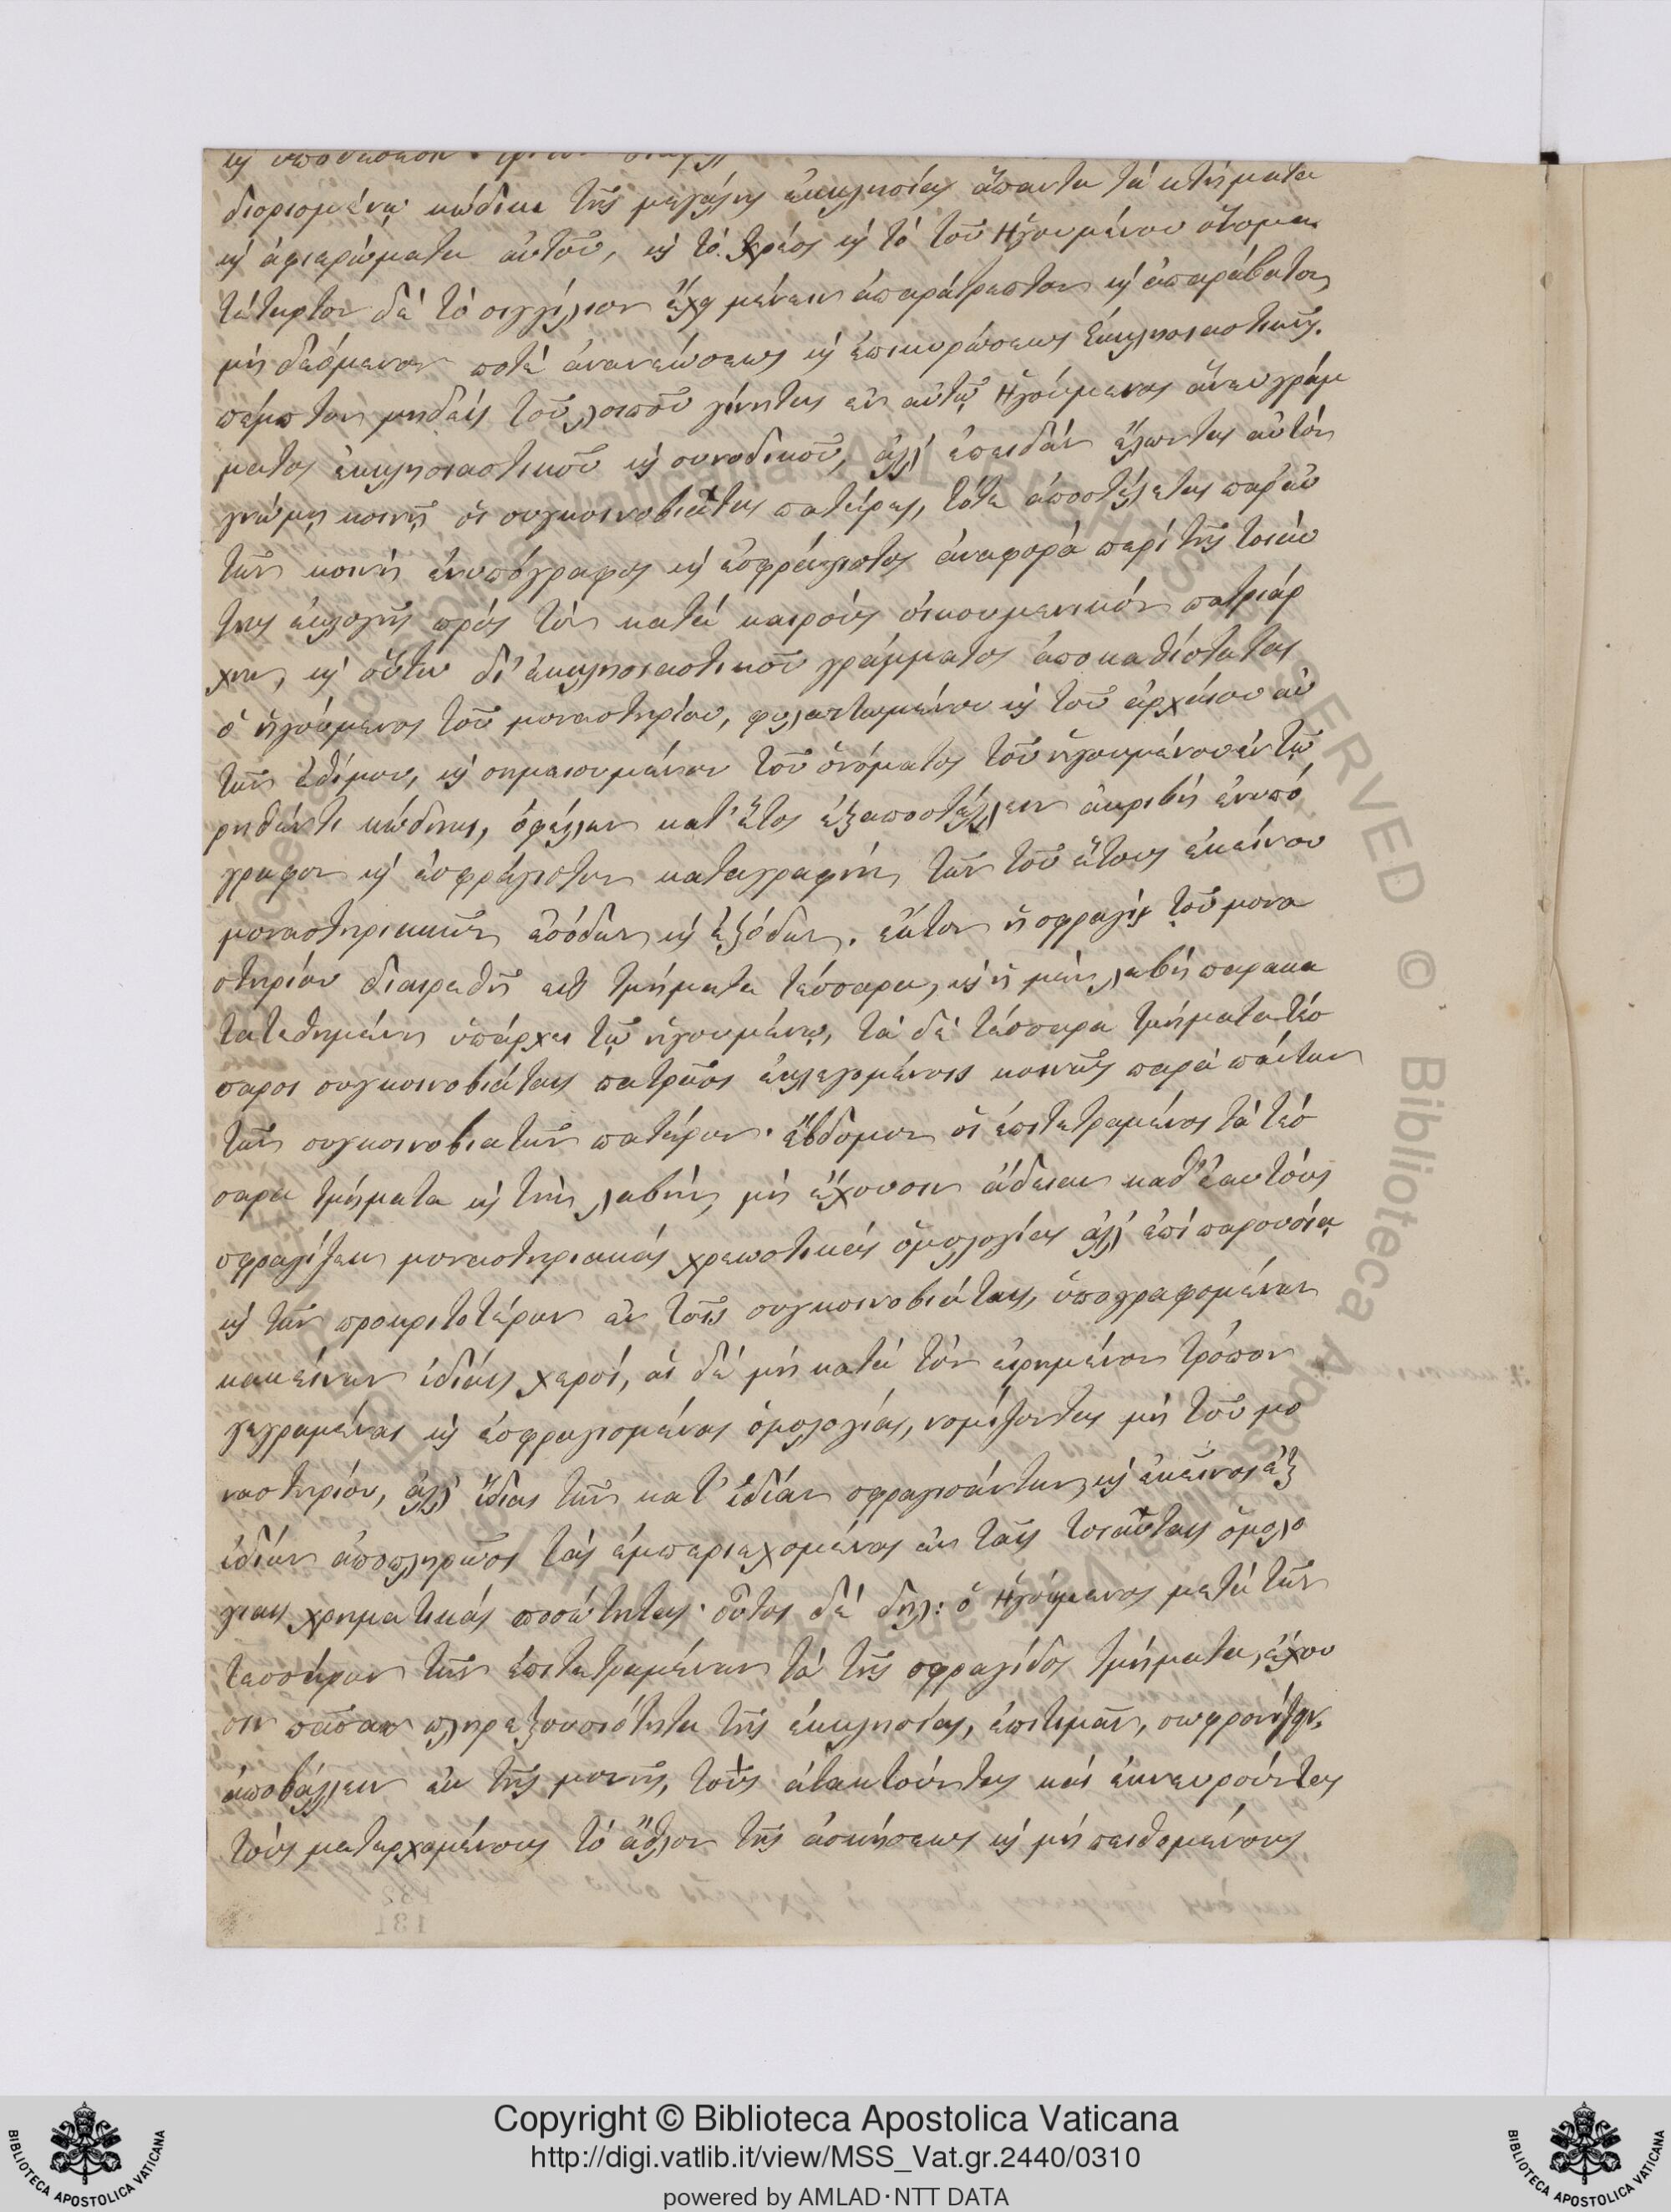 διορισμένῳ κώδικι τῆς μεγάλης ἐκκλησίας ἅπαντα τὰ κτήματα
καὶ ἀφιερώματα αὐτοῦ, καὶ τὸ χρέος καὶ τὸ τοῦ Ἡγουμένου ὄνομα.
τέταρτον δὲ τὸ σιγγίλιον ἔχῃ μένειν ἀπαράτρεπτον καὶ ἀπαράβατον
μὴ δεόμενον ποτὲ ἀνανεώσεως καὶ ἐπικυρώσεως ἐκκλησιαστικῆς.
πέμπτον μηδεὶς τοῦ λοιποῦ γίνηται ἐν αὐτῷ Ἡγούμενος ἄνευ γράμ
ματος ἐκκλησιαστικοῦ καὶ συνοδικοῦ, ἀλλ' ἐπειδὰν ἕλωνται αὐτὸν
γνώμῃ κοινῇ οἱ συγκοινοβιᾶται πατέρες, τότε ἀποστέλεται παρ' αὐ
τῶν κοινὴ ἐνυπόγραφος καὶ ἐσφράγιστος ἀναφορὰ περὶ τῆς τοιαύ
της ἐκλογῆς πρὸς τὸν κατὰ καιροὺς οἰκουμενικὸν πατριάρ
χην, καὶ οὕτω δι' ἐκκλησιαστικοῦ γράμματος ἀποκαθίσταται
ὁ ἡγούμενος τοῦ μοναστηρίου, φυλαττωμένου καὶ τοῦ ἀρχαίου αὐ
τῶν ἐθίμου, καὶ σημειουμένου τοῦ ὀνόματος τοῦ ἡγουμένου ἐν τῷ
ρηθέντι κώδηκι, ὀφείλων κατ' ἔτος ἐξαποστέλλειν ἀκριβῆ ἐνυπό
γραφον καὶ ἐσφράγιστον καταγραφὴν τῶν τοῦ ἔτους ἐκείνου
μοναστηριακῶν ἐσόδων καὶ ἐξόδων. ἕκτον ἡ σφραγὶς τοῦ μονα
στηρίου διαιρεθῇ εἰς τμήματα τέσσαρα, καὶ ἡ μὲν λαβὴ παρακα
τατεθημένη ὑπάρχει τῷ ἡγουμένῳ, τὰ δὲ τέσσαρα τμήματα τέσ
σαροι συγκοινοβιάταις πατρᾶσι ἐκλεγομένοις κοινῶς παρὰ πάντων
τῶν συγκοινοβιατῶν πατέρων. ἕβδομον οἱ ἐπιτετραμένοι τὰ τέσ
σαρα τμήματα καὶ τὴν λαβὴν, μὴ ἔχουσιν ἄδειαν καθ' ἑαυτοὺς
σφραγίζειν μοναστηριακὰς χρεωστικὰς ὁμολογίας ἀλλ' ἐπὶ παρουσίᾳ
καὶ τῶν προκριτοτέρων ἐν τοῖς συγκοινοβιάταις, ὑπογραφομένων
κακείνων ἰδίαις χερσὶ, αἱ δὲ μὴ κατὰ τὸν εἰρημένον τρόπον
γεγραμέναι καὶ ἐσφραγισμέναι ὁμολογίαι, νομίζονται μὴ τοῦ μο
ναστηρίου, ἀλλ' ἴδιαι τῶν κατ' ἰδίαν σφραγισάντων, καὶ ἐκεῖνοι ἐξ
ἰδίων ἀποπληρῶσι τὰς ἐμπεριεχομένας ἐν ταῖς τοιαῦταις ὁμολο
γίαις χρηματικὰς ποσώτητας· οὗτος δὲ δηλ: ὁ Ἡγούμενος μετὰ τῶν
τεσσάρων τῶν ἐπιτετραμένων τὰ τῆς σφραγίδος τμήματα, ἔχου
σιν πᾶσαν πληρεξουσιότητα τῆς ἐκκλησίας, ἐπιτιμᾶν, σωφρονίζειν,
ἀποβάλλειν ἐκ τῆς μονῆς, τοὺς ἀτακτοῦντας καὶ ἐκνευροῦντας
τοὺς μετερχομένους τὸ ἆθλον τῆς ἀσκήσεως καὶ μὴ πειθομένους
Copyright © Biblioteca Apostolica Vaticana
http://digi.vatlib.it/view/MSS_Vat.gr.2440/0310
powered by AMLAD·NTT DATA
BIBLIOTECA APOSTOLICA VATICANA
BIBLIOTECA APOSTOLICA VATICANA